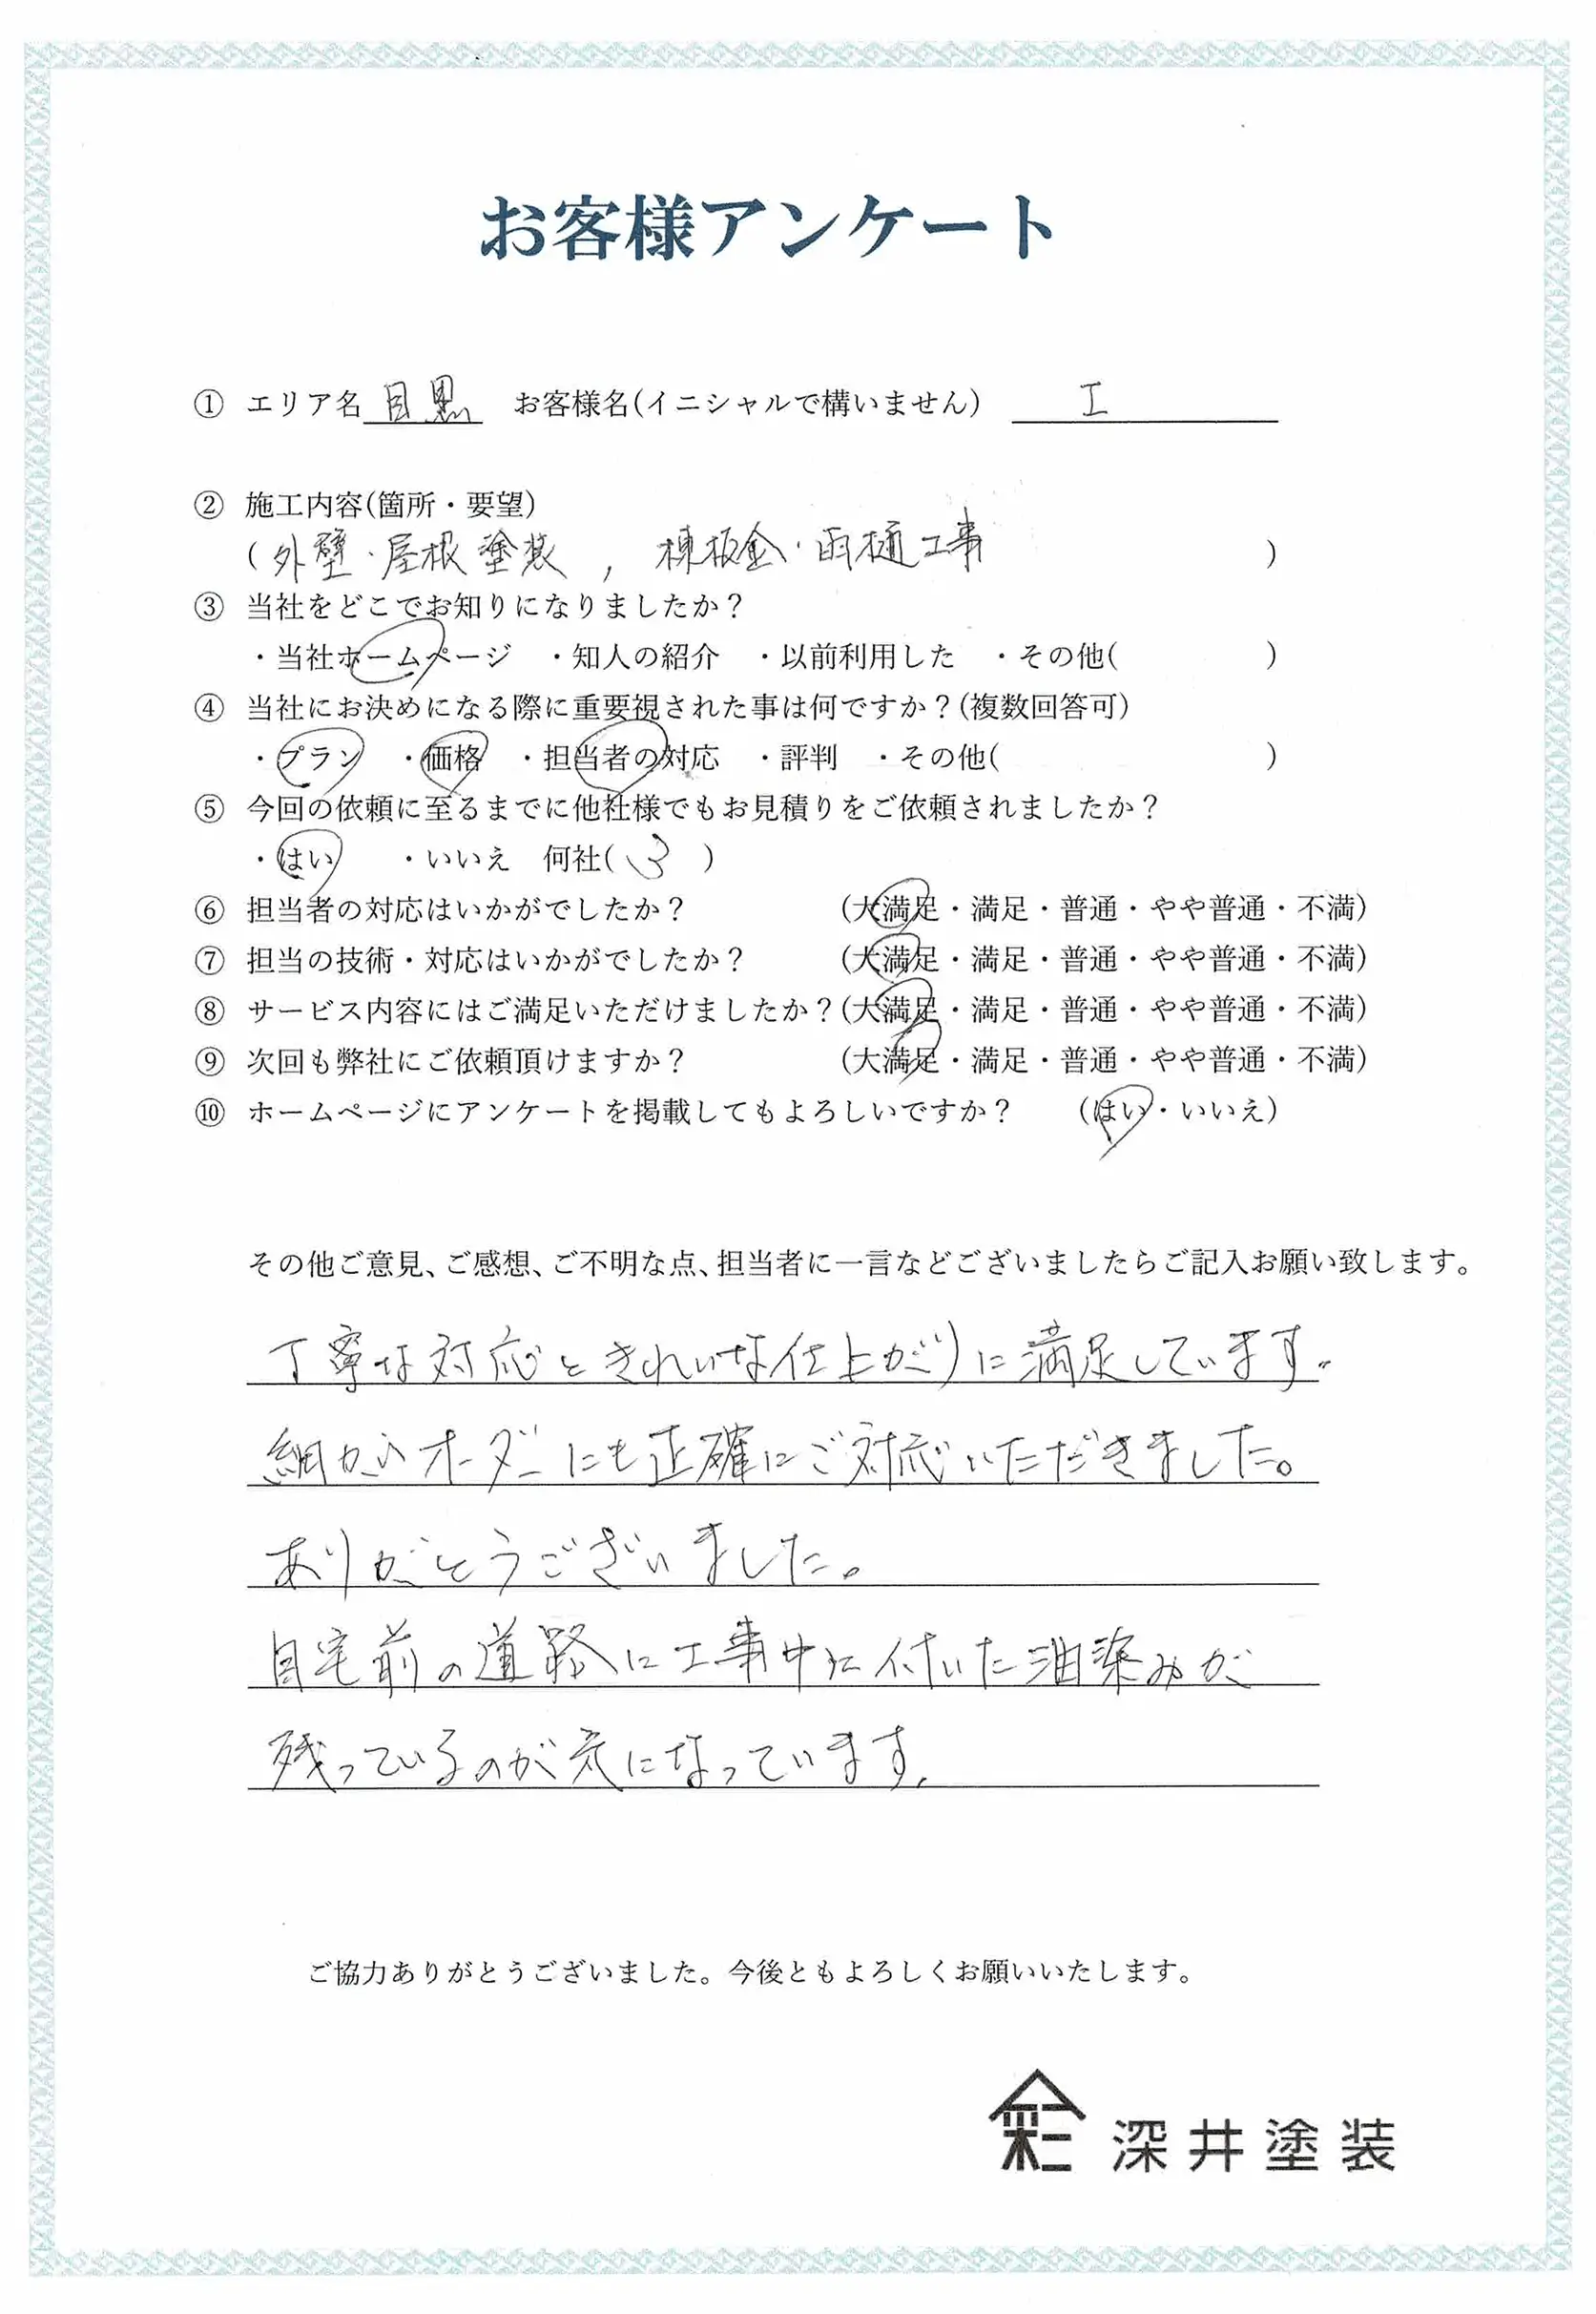 お客様アンケート
① エリア名 目黒 お客様名(イニシャルで構いません) I
② 施工内容(箇所・要望)
(外壁・屋根塗装, 棟板金・雨樋工事)
③ 当社をどこでお知りになりましたか?
・当社ホームページ ・知人の紹介 ・以前利用した ・その他( )
④ 当社にお決めになる際に重要視された事は何ですか?(複数回答可)
・プラン ・価格 ・担当者の対応 ・評判 ・その他( )
⑤ 今回の依頼に至るまでに他社様でもお見積りをご依頼されましたか?
・はい ・いいえ 何社( 3 )
⑥ 担当者の対応はいかがでしたか? (大満足・満足・普通・やや普通・不満)
⑦ 担当の技術・対応はいかがでしたか? (大満足・満足・普通・やや普通・不満)
⑧ サービス内容にはご満足いただけましたか?(大満足・満足・普通・やや普通・不満)
⑨ 次回も弊社にご依頼頂けますか? (大満足・満足・普通・やや普通・不満)
⑩ ホームページにアンケートを掲載してもよろしいですか? (はい・いいえ)
その他ご意見、ご感想、ご不明な点、担当者に一言などございましたらご記入お願い致します。
丁寧な対応ときれいな仕上がりに満足しています。
細かいオーダーにも正確にご対応いただきました。
ありがとうございました。
自宅前の道路に工事中に付いた油染みが
残っているのが気になっています。
ご協力ありがとうございました。今後ともよろしくお願いいたします。
彩 深井塗装